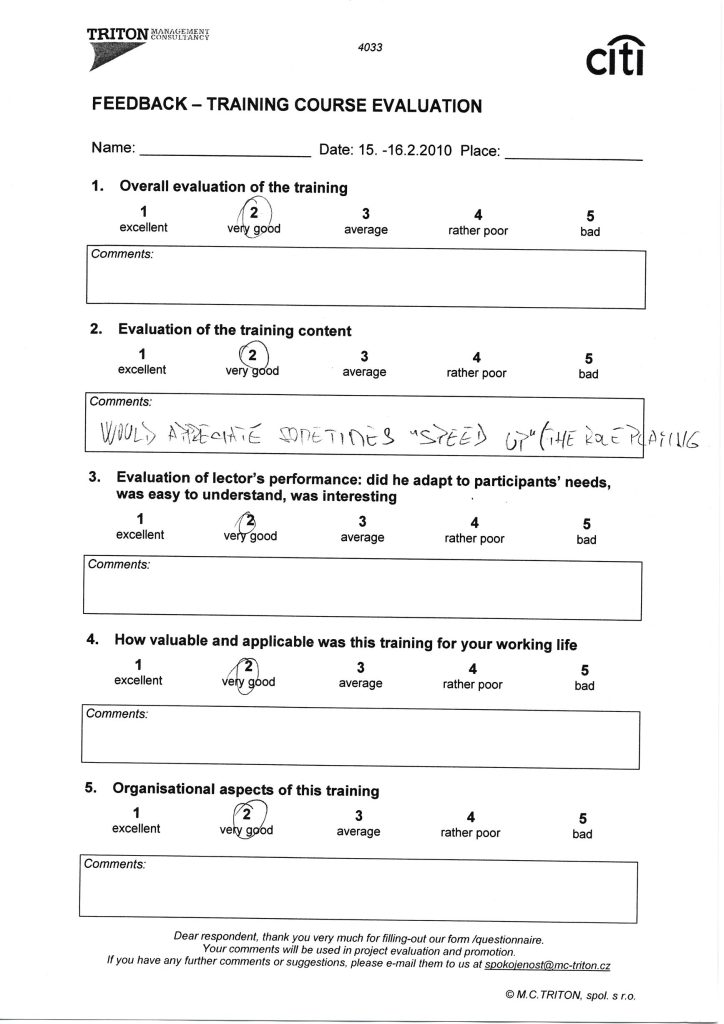 TRITON MANAGEMENT CONSULTANCY
4033
citi
FEEDBACK – TRAINING COURSE EVALUATION
Name: Date: 15. -16.2.2010 Place:
1. Overall evaluation of the training
1 2 3 4 5
excellent very good average rather poor bad
Comments:
2. Evaluation of the training content
1 2 3 4 5
excellent very good average rather poor bad
Comments:
WOULD APPRECIATE SOMETIMES "SPEED UP" (THE ROLE PLAYING
3. Evaluation of lector's performance: did he adapt to participants' needs,
was easy to understand, was interesting
1 2 3 4 5
excellent very good average rather poor bad
Comments:
4. How valuable and applicable was this training for your working life
1 2 3 4 5
excellent very good average rather poor bad
Comments:
5. Organisational aspects of this training
1 2 3 4 5
excellent very good average rather poor bad
Comments:
Dear respondent, thank you very much for filling-out our form /questionnaire.
Your comments will be used in project evaluation and promotion.
If you have any further comments or suggestions, please e-mail them to us at spokojenost@mc-triton.cz
© M.C.TRITON, spol. s r.o.